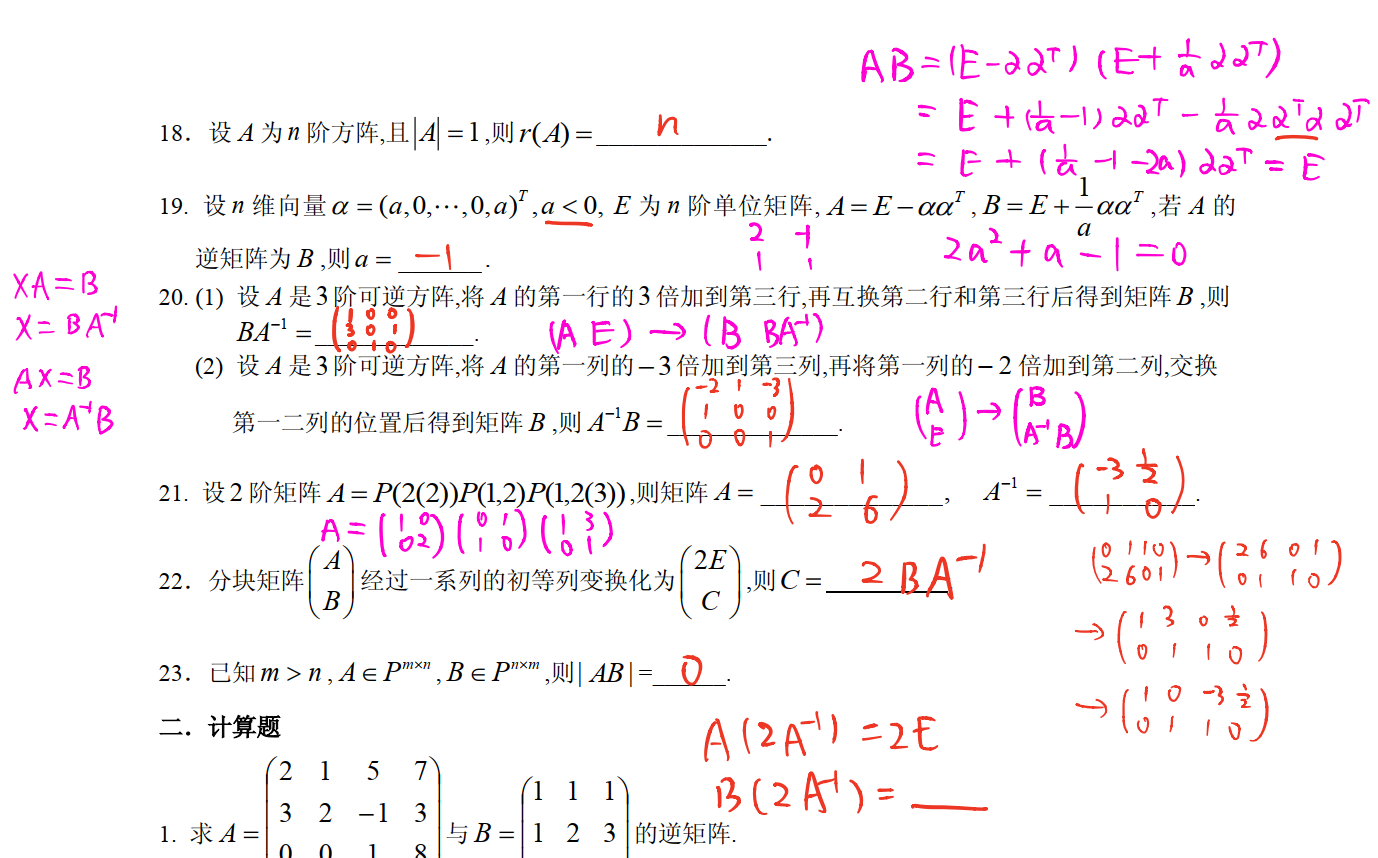 AB=(E-αα^T)(E+1/a αα^T)
= E+(1/a-1)αα^T - 1/a αα^Tαα^T
= E+(1/a-1-2a)αα^T = E
18．设 A 为 n 阶方阵,且|A|=1,则 r(A)= n .
19. 设 n 维向量 α=(a,0,⋯,0,a)^T, a<0, E 为 n 阶单位矩阵, A=E-αα^T, B=E+1/a αα^T,若 A 的
逆矩阵为 B,则 a= -1 .
2 -1
1 1
2a²+a-1=0
XA=B
X=BA^-1
AX=B
X=A^-1B
20. (1) 设 A 是 3 阶可逆方阵,将 A 的第一行的 3 倍加到第三行,再互换第二行和第三行后得到矩阵 B,则
BA^-1 = (1 0 0
3 0 1
0 1 0) .
(A E)→(B BA^-1)
(2) 设 A 是 3 阶可逆方阵,将 A 的第一列的－3 倍加到第三列,再将第一列的－2 倍加到第二列,交换
第一二列的位置后得到矩阵 B,则 A^-1B = (-2 1 -3
1 0 0
0 0 1) .
(A
E)→(B
A^-1B)
21. 设 2 阶矩阵 A=P(2(2))P(1,2)P(1,2(3)),则矩阵 A= (0 1
2 6), A^-1 = (-3 1/2
1 0).
A=(1 0
0 2)(0 1
1 0)(1 3
0 1)
(0 1 1 0
2 6 0 1)→(2 6 0 1
0 1 1 0)
→(1 3 0 1/2
0 1 1 0)
→(1 0 -3 1/2
0 1 1 0)
22．分块矩阵(A
B)经过一系列的初等列变换化为(2E
C),则 C= 2BA^-1
23．已知 m>n, A∈P^m×n, B∈P^n×m,则| AB |= 0 .
A(2A^-1)=2E
B(2A^-1)=
二．计算题
1. 求 A=(2 1 5 7
3 2 -1 3
0 0 1 8
与 B=(1 1 1
1 2 3
的逆矩阵.